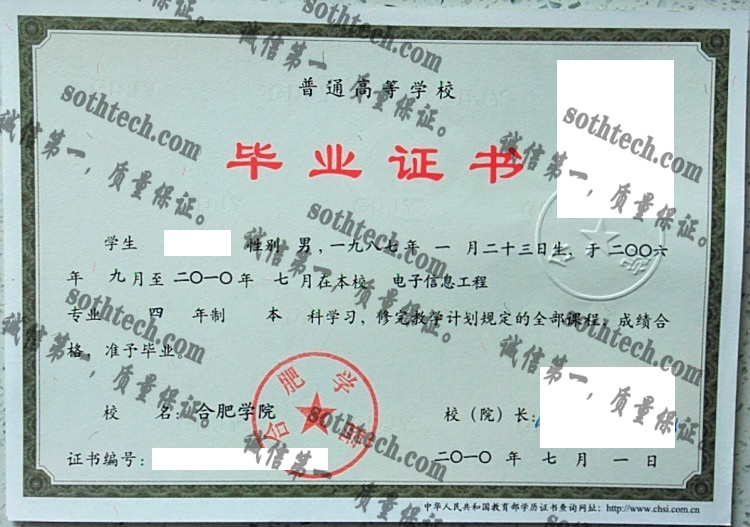 普通高等学校
毕业证书
学生 性别 男,一九八七年 一 月二十三日生,于二〇〇六
年 九月至二〇一〇年 七月在本校 电子信息工程
专业 四 年制 本 科学习,修完教学计划规定的全部课程,成绩合
格,准予毕业。
校 名:合肥学院
校(院)长:
证书编号:
二〇一〇 年 七 月 一 日
合肥学院
中华人民共和国教育部学历证书查询网址:http://www.chsi.com.cn
sothtech.com
诚信第一,质量保证。
sothtech.com
诚信第一,质量保证。
sothtech.com
诚信第一,质量保证。
sothtech.com
诚信第一,质量保证。
sothtech.com
诚信第一,质量保证。
sothtech.com
诚信第一,质量保证。
sothtech.com
诚信第一,质量保证。